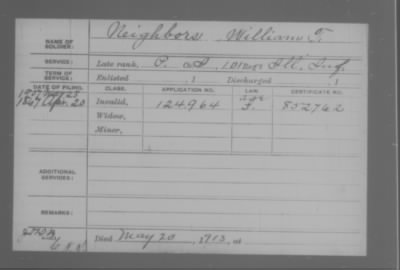 NAME OF SOLDIER: Neighbors William T.
SERVICE: Late rank, P. Co. I, 101 Reg't Ill. Inf.
TERM OF SERVICE: Enlisted 1 Discharged 1
DATE OF FILING. CLASS. APPLICATION NO. LAW. CERTIFICATE NO.
Apr. 20 Invalid, 124.964 852762
Widow,
Minor,
ADDITIONAL SERVICES:
REMARKS:
Died May 20, 1913, at